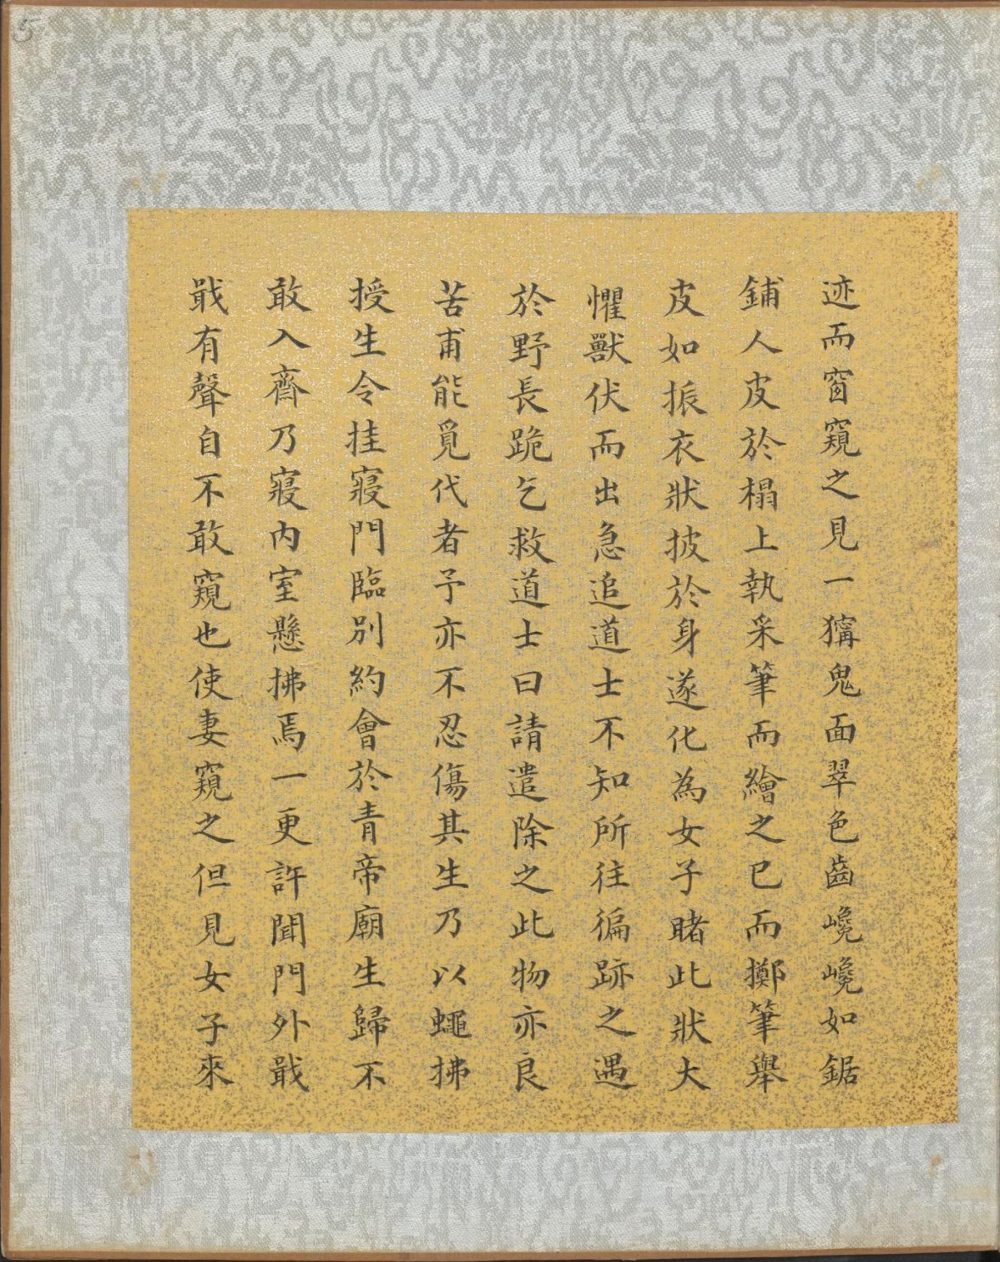 迹而窗窺之見一獰鬼面翠色齒巉巉如鋸
鋪人皮於榻上執采筆而繪之已而擲筆舉
皮如振衣狀披於身遂化為女子睹此狀大
懼獸伏而出急追道士不知所往徧跡之遇
於野長跪乞救道士曰請遣除之此物亦良
苦甫能覓代者予亦不忍傷其生乃以蠅拂
授生令挂寢門臨別約會於青帝廟生歸不
敢入齋乃寢內室懸拂焉一更許聞門外戢
戢有聲自不敢窺也使妻窺之但見女子來
5